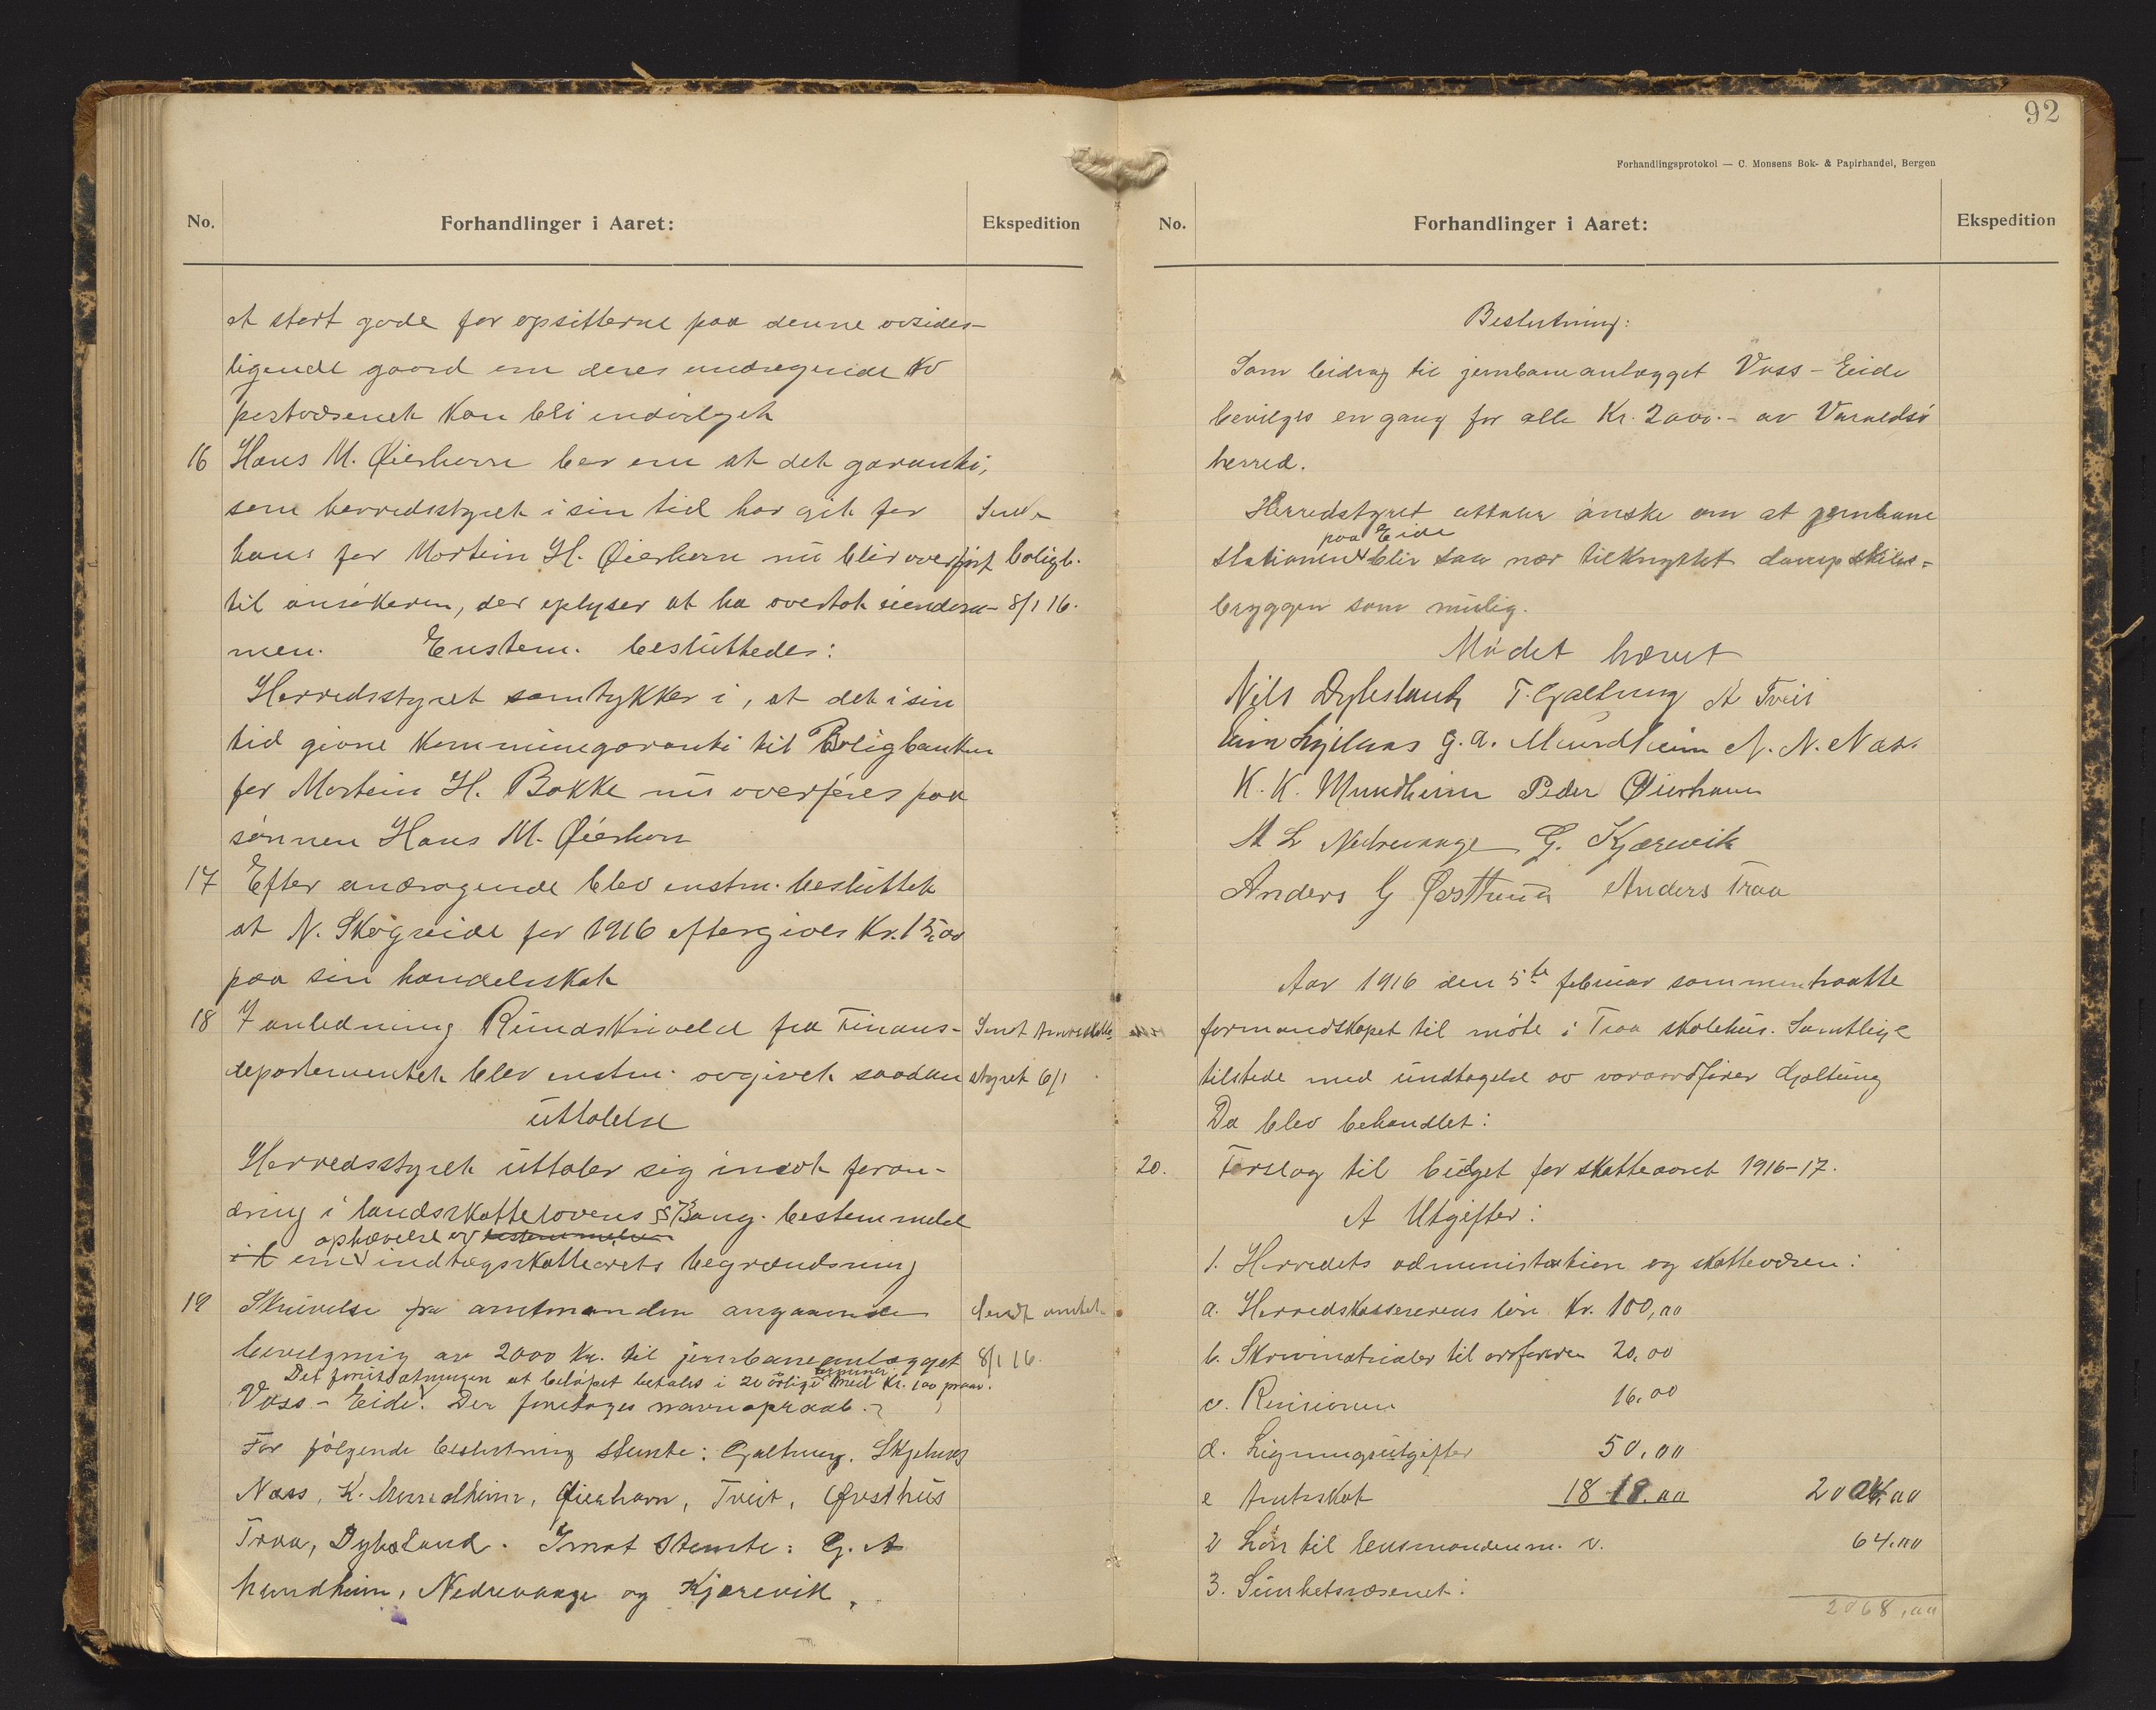 92
Forhandlingsprotokol — C. Monsens Bok- & Papirhandel, Bergen
No. Forhandlinger i Aaret: Ekspedition
et stort gode for opsitterne paa denne avsides-
ligende gaard om deres andragende til
postvæsenet kan bli indvilget
16 Hans M. Øierhavn ber om at det garanti,
som herredsstyret i sin tid har git for Sendt
hans far Mortein H. Øierhavn nu blir overført boligb.
til ansökeren, der oplyser at ha overtat eiendom- 8/1 16.
men. Enstem. besluttedes:
Herredsstyret samtykker i, at det i sin
tid givne kommunegaranti til Boligbanken
for Mortein H. Bakke nu overføres paa
sönnen Hans M. Øierhavn
17 Efter andragende blev enstm. besluttet
at N. Skogseide for 1916 eftergives Kr. 15,00
paa sin handelsskat
18 I anledning Rundskrivelse fra Finans- Sendt Amtsskatte-
departementet blev enstm. avgivet saadan styret 6/1
uttalelse
Herredsstyret uttaler sig imot foran-
dring i landsskattelovens § ang. bestemmelse
ophævelse av bestemmelsen
om indtægtsskatteørets begrændsning
19 Skrivelse fra amtmanden angaaende Sendt amtet
bevilgning av 2000 kr. til jernbaneanlægget 8/1 16.
Det forutsætningen at beløpet betales i 20 årlige terminer med Kr. 100 pr aar.
Voss - Eide. Der foretoges navneopraab.
For følgende beslutning stemte: Galtung, Skjelnes
Næss, K. Mundheim, Øierhavn, Tveit, Øvsthus
Traa, Dybsland. Imot stemte: G. A
Mundheim, Nedrevaage og Kjærevik.
No. Forhandlinger i Aaret: Ekspedition
Beslutning:
Som bidrag til jernbaneanlægget Voss - Eide
bevilges en gang for alle Kr. 2000.- av Varaldsø
herred.
Herredstyret uttaler ønske om at jernbane
paa Eide
stationen blir saa nær tilknyttet dampskibs-
bryggen som mulig.
Mødet hævet
Nils Dybesland T. Galtung A Tveit
G. A. Mundheim N. Næs.
K. K. Mundheim Peder Øierhavn
M L Nedrevaage G. Kjærevik
Anders G Øvsthus Anders Traa
Aar 1916 den 5te februar sammentraatte
formandskapet til møte i Traa skolehus. Samtlige
tilstede med undtagelse av varaordfører Galtung
Da blev behandlet:
20. Forslag til budget for skatteaaret 1916-17.
A Utgifter:
1. Herredets administration og skattevæsen:
a. Herredskassererens løn Kr. 100,00
b. Skrivmatrialer til ordføreren 20,00
c. Revisionen 16,00
d. Ligningsutgifter 50,00
e Amtsskat 1818,00 2004,00
2 Løn til lensmanden m. v. 64,00
3. Sundhetsvæsenet:
2068,00